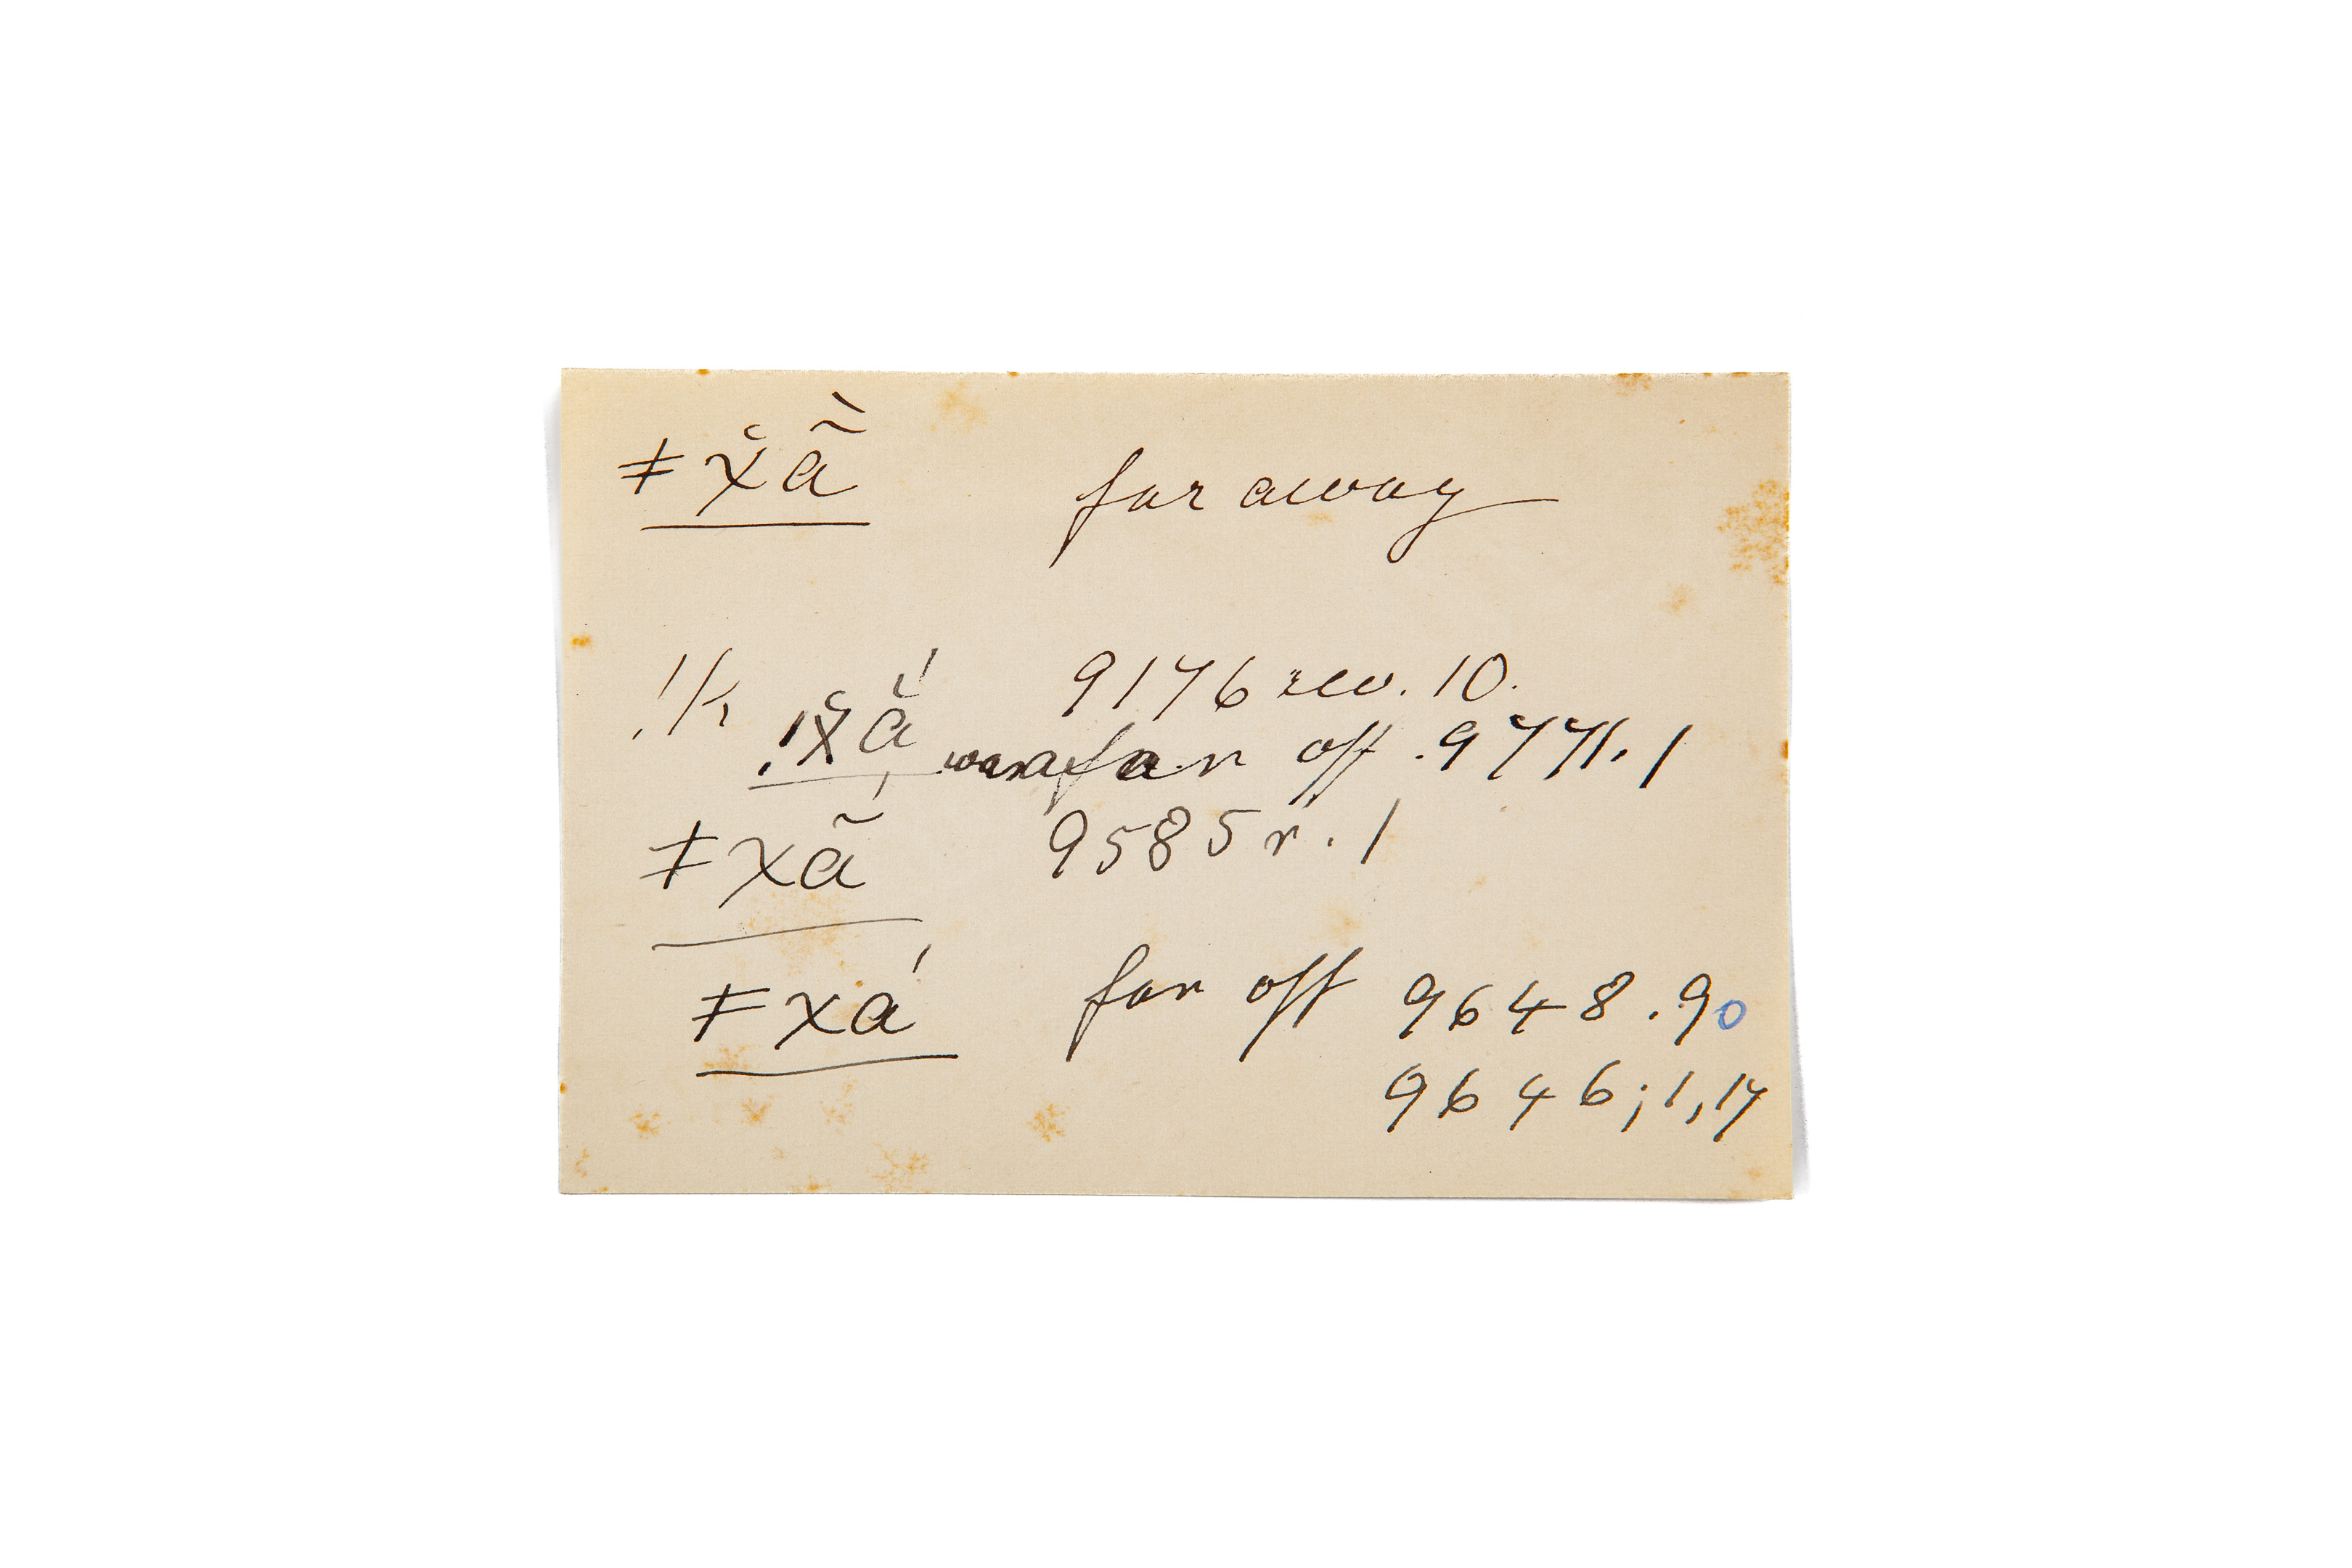 ǂχ̆ã̀ far away
!k, 9176 rev. 10.
!χ̆ã́ was far off .9771.1
ǂχã́ 9585 r. 1
ǂχá far off 9648.90
9646; 1, 17